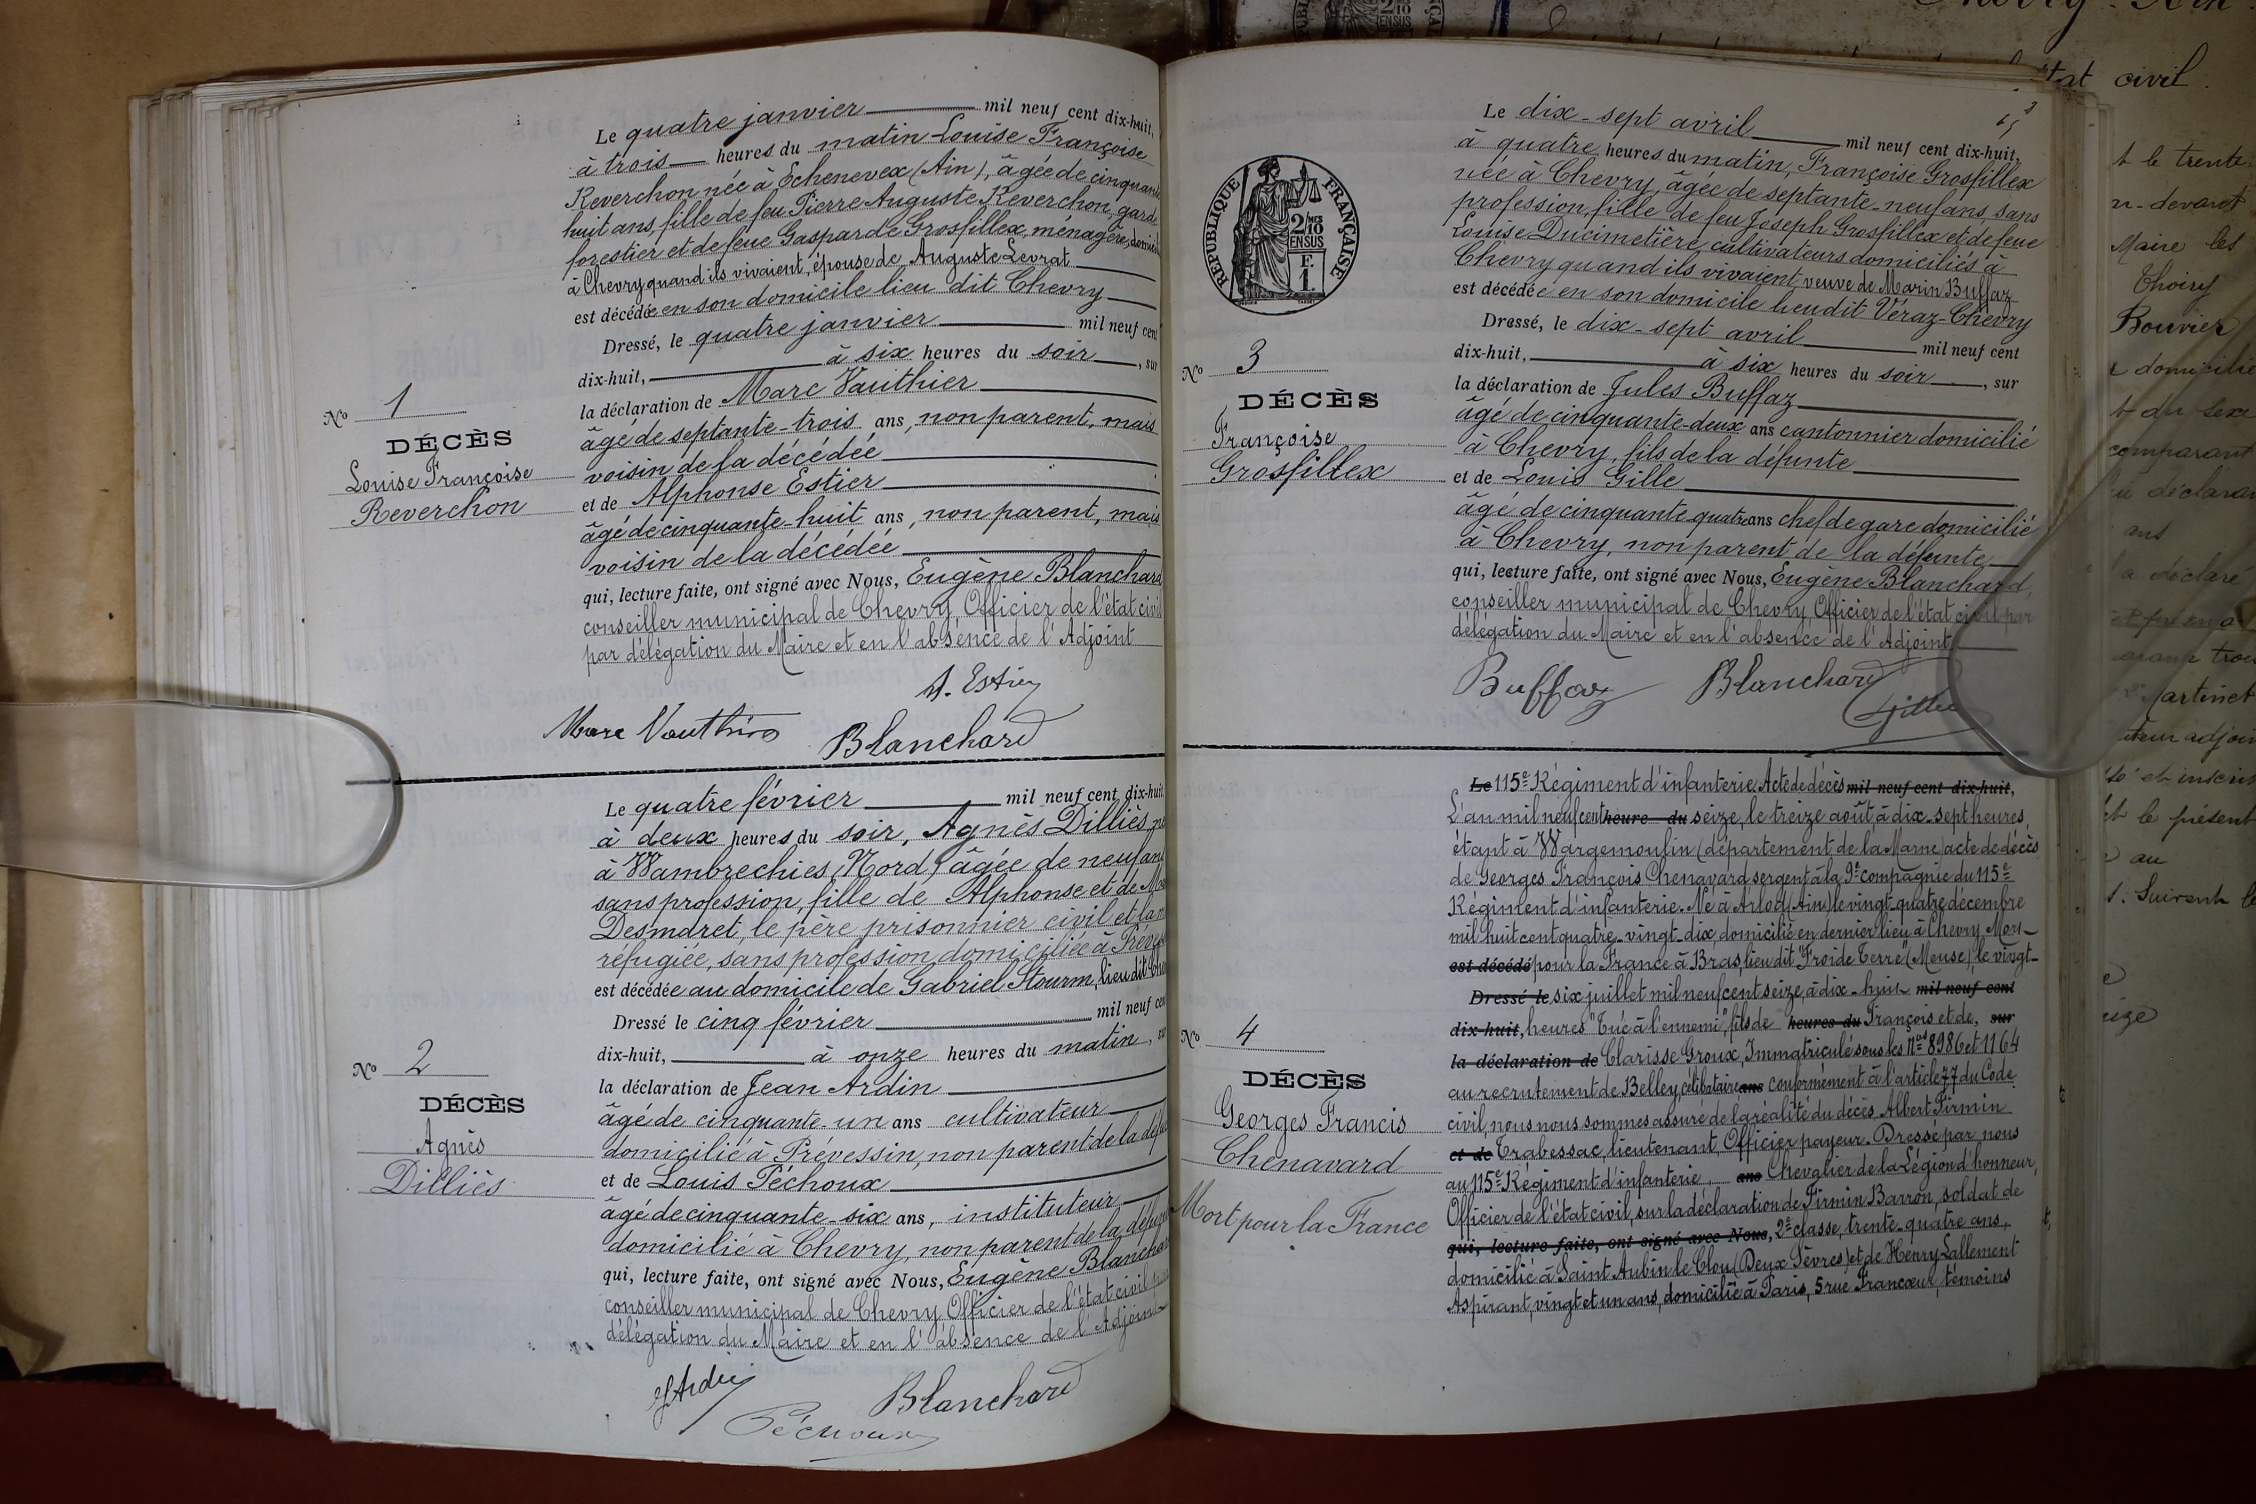 Le quatre janvier mil neuf cent dix-huit,
à trois heures du matin Louise Françoise
Reverchon née à Echenevex (Ain), âgée de cinquante
huit ans, fille de feu Pierre Auguste Reverchon, garde
forestier et de feue Gasparde Grosfillex, ménagère, domicili
à Chevry quand ils vivaient, épouse de Auguste Levrat
est décédée en son domicile lieu dit Chevry
Dressé, le quatre janvier mil neuf cent
dix-huit, à six heures du soir, sur
la déclaration de Marc Vauthier
âgé de septante-trois ans, non parent, mais
voisin de la décédée
et de Alphonse Estier
âgé de cinquante-huit ans, non parent, mais
voisin de la décédée
qui, lecture faite, ont signé avec Nous, Eugène Blanchard
conseiller municipal de Chevry, Officier de l'état civil
par délégation du Maire et en l'absence de l'Adjoint
A. Estier
Marc Vauthier Blanchard
No 1
DÉCÈS
Louise Françoise
Reverchon
Le quatre février mil neuf cent dix-huit,
à deux heures du soir, Agnès Dilliès, né
à Wambrechies (Nord) âgée de neuf ans
sans profession, fille de Alphonse et de
Desmaret, le père prisonnier civil et la m
réfugiée, sans profession domiciliée à Préves
est décédée au domicile de Gabriel Stourm, lieu dit Che
Dressé le cinq février mil neuf cen
dix-huit, à onze heures du matin, su
la déclaration de Jean Ardin
âgé de cinquante-un ans cultivateur
domicilié à Prévessin, non parent de la défu
et de Louis Péchoux
âgé de cinquante-six ans, instituteur
domicilié à Chevry, non parent de la défun
qui, lecture faite, ont signé avec Nous, Eugène Blanchar
conseiller municipal de Chevry Officier de l'état civil par
délégation du Maire et en l'absence de l'Adjoint
J Ardin Blanchard
Péchoux
No 2
DÉCÈS
Agnès
Dilliès
Le dix-sept avril mil neuf cent dix-huit,
à quatre heures du matin, Françoise Grosfillex
née à Chevry, âgée de septante-neuf ans, sans
profession, fille de feu Joseph Grosfillex et de feue
Louise Ducimetière cultivateurs domiciliés à
Chevry quand ils vivaient, veuve de Marin Buffaz
est décédée en son domicile lieu dit Véraz-Chevry
Dressé, le dix-sept avril mil neuf cent
dix-huit, à six heures du soir, sur
la déclaration de Jules Buffaz
âgé de cinquante-deux ans cantonnier domicilié
à Chevry, fils de la défunte
et de Louis Gille
âgé de cinquante quatre ans chef de gare domicilié
à Chevry, non parent de la défunte
qui, lecture faite, ont signé avec Nous, Eugène Blanchard,
conseiller municipal de Chevry, Officier de l'état civil par
délégation du Maire et en l'absence de l'Adjoint
Buffaz Blanchard
Gille
REPUBLIQUE FRANÇAISE
2/10 MES
EN SUS
F.
1.
No 3
DÉCÈS
Françoise
Grosfillex
Le 115e Régiment d'infanterie. Acte de décès mil neuf cent dix-huit,
L'an mil neuf cent heure du seize, le treize août, à dix-sept heures,
étant à Wargemoulin (département de la Marne) acte de décès
de Georges François Chenavard sergent à la 9e compagnie du 115e
Régiment d'infanterie. Né à Arlod (Ain) le vingt-quatre décembre
mil huit cent quatre-vingt-dix, domicilié en dernier lieu à Chevry, Mort
est décédé pour la France à Bras, lieu dit "Froide Terre" (Meuse), le vingt-
Dressé le six juillet mil neuf cent seize, à dix-huit mil neuf cent
dix-huit, heures "Tué à l'ennemi", fils de heures du François et de, sur
la déclaration de Clarisse Groux, Immatriculé sous les Nos 8986 et 1164
au recrutement de Belley, célibataire ans conformément à l'article 77 du Code
civil, nous nous sommes assuré de la réalité du décès Albert Firmin
et de Trabessac, lieutenant, Officier payeur. Dressé par nous
au 115e Régiment d'infanterie, ans Chevalier de la Légion d'honneur,
Officier de l'état civil, sur la déclaration de Firmin Barron, soldat de
qui, lecture faite, ont signé avec Nous, 2e classe, trente-quatre ans,
domicilié à Saint Aubin le Clou (Deux Sèvres) et de Henry Lallement
Aspirant, vingt et un ans, domicilié à Paris, 5 rue Francœur, témoins
No 4
DÉCÈS
Georges Francis
Chenavard
Mort pour la France
état civil.
t le trente
Maire les
Thoiry
Bouvier
domicilié
t du sexe
comparant
déclara
ans
a déclaré
trois
Martinet
adjoin
et inscrit
et le présent
au
Suivent le